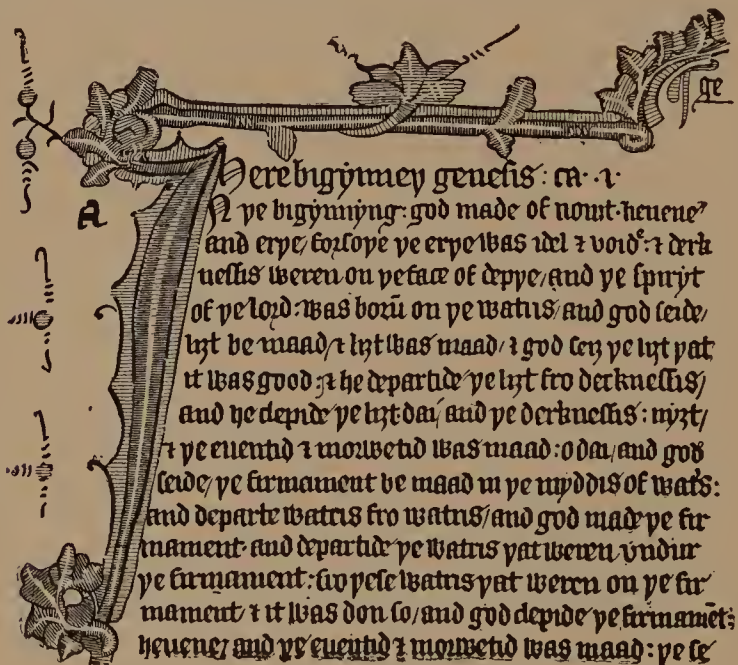 ge
Here bigynneþ genesis: ca. ı.
a
IN þe bigynnyng: god made of nouȝt. heuene
and erþe/ forsoþe þe erþe was idel ⁊ voide: ⁊ derk
nessis weren on þe face of depþe/ and þe spiryt
of þe lord: was borū on þe watris/ and god seide/
liȝt be maad/ ⁊ liȝt was maad/ ⁊ god seiȝ þe liȝt þat
it was good: ⁊ he departide þe liȝt fro derknessis/
and he clepide þe liȝt dai/ and þe derknessis: nyȝt/
⁊ þe euentid ⁊ morwetid was maad: o dai/ and god
seide/ þe firmament be maad in þe myddis of wat's:
and departe watris fro watris/ and god made þe fir
mament. and departide þe watris þat weren vndur
þe firmament: fro þese watris þat weren on þe fir
mament/ ⁊ it was don so/ and god clepide þe firmamēt:
heuene/ and þe euentid ⁊ morwetid was maad: þe se